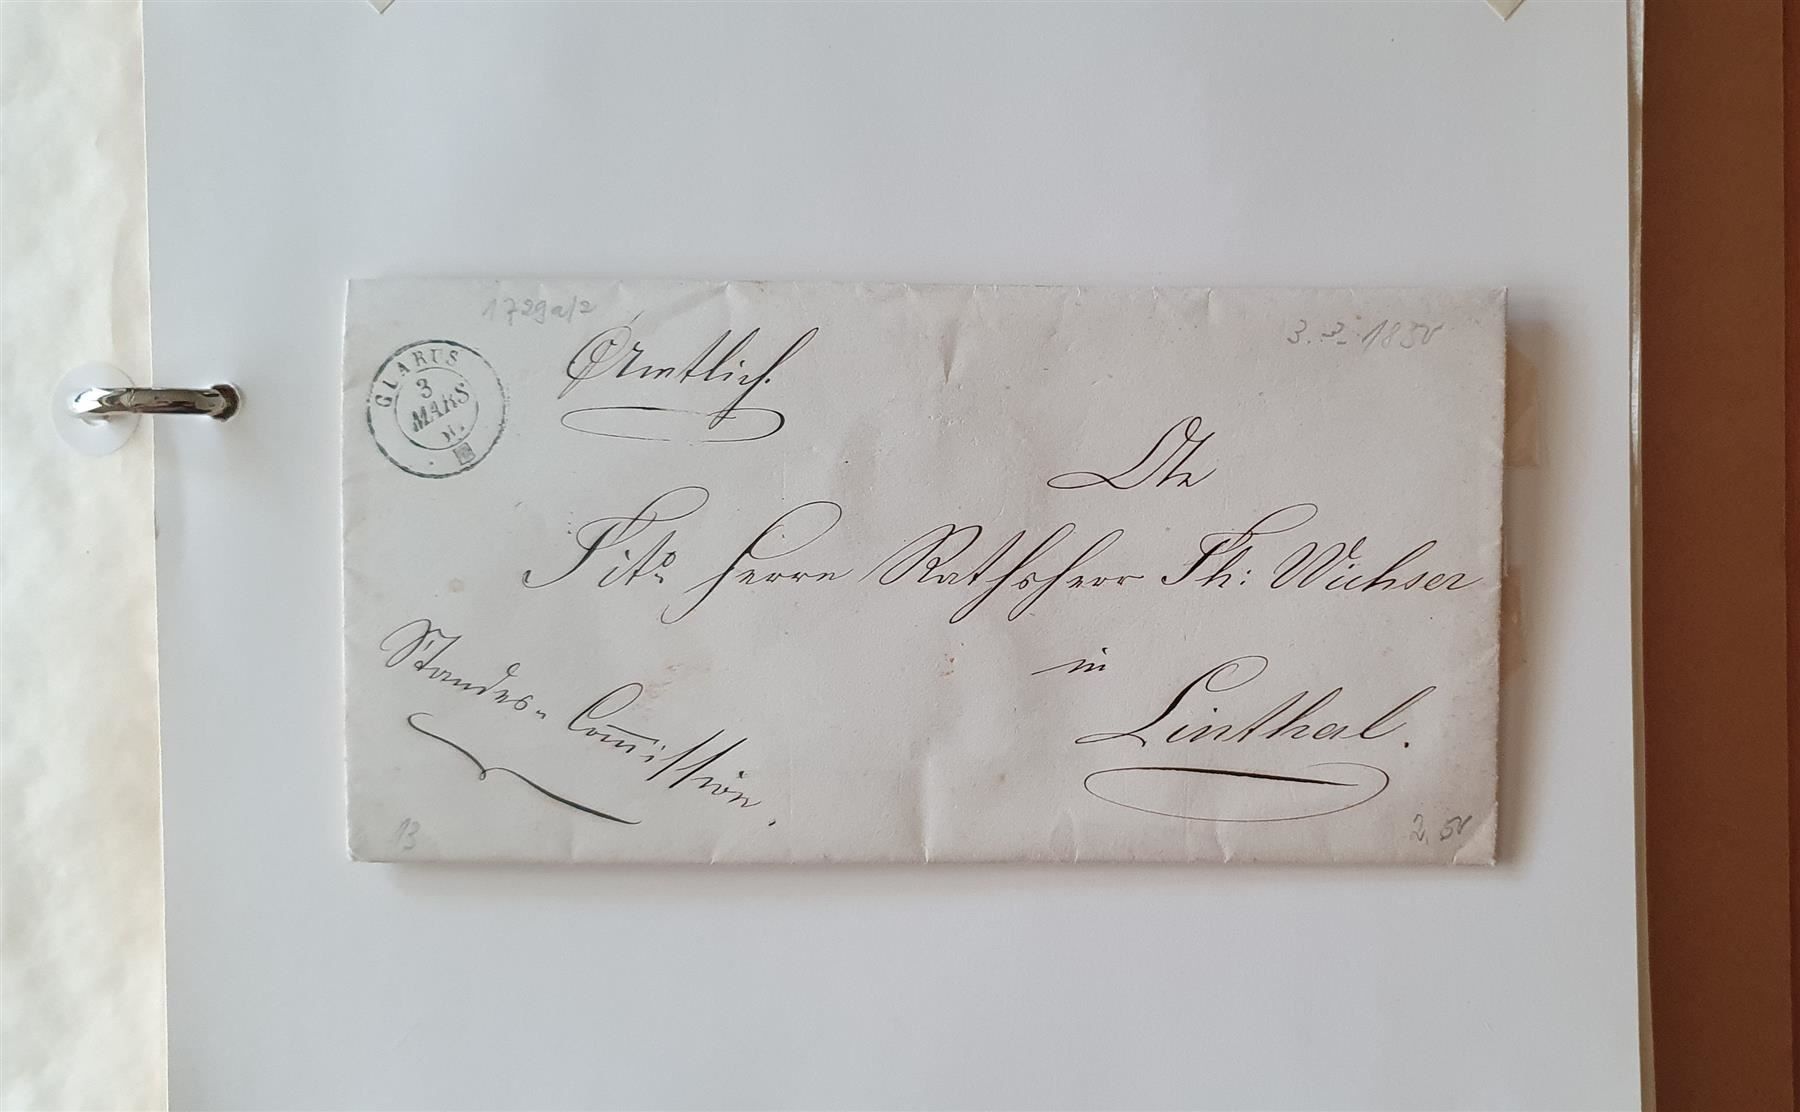 1729a/2
3.3.1850
GLARUS
3
MARS
Amtlich.
An
Tit. Herrn Rathsherr Th: Wichser
in
Linthal.
Standes-Com̅ission.
13
2.50